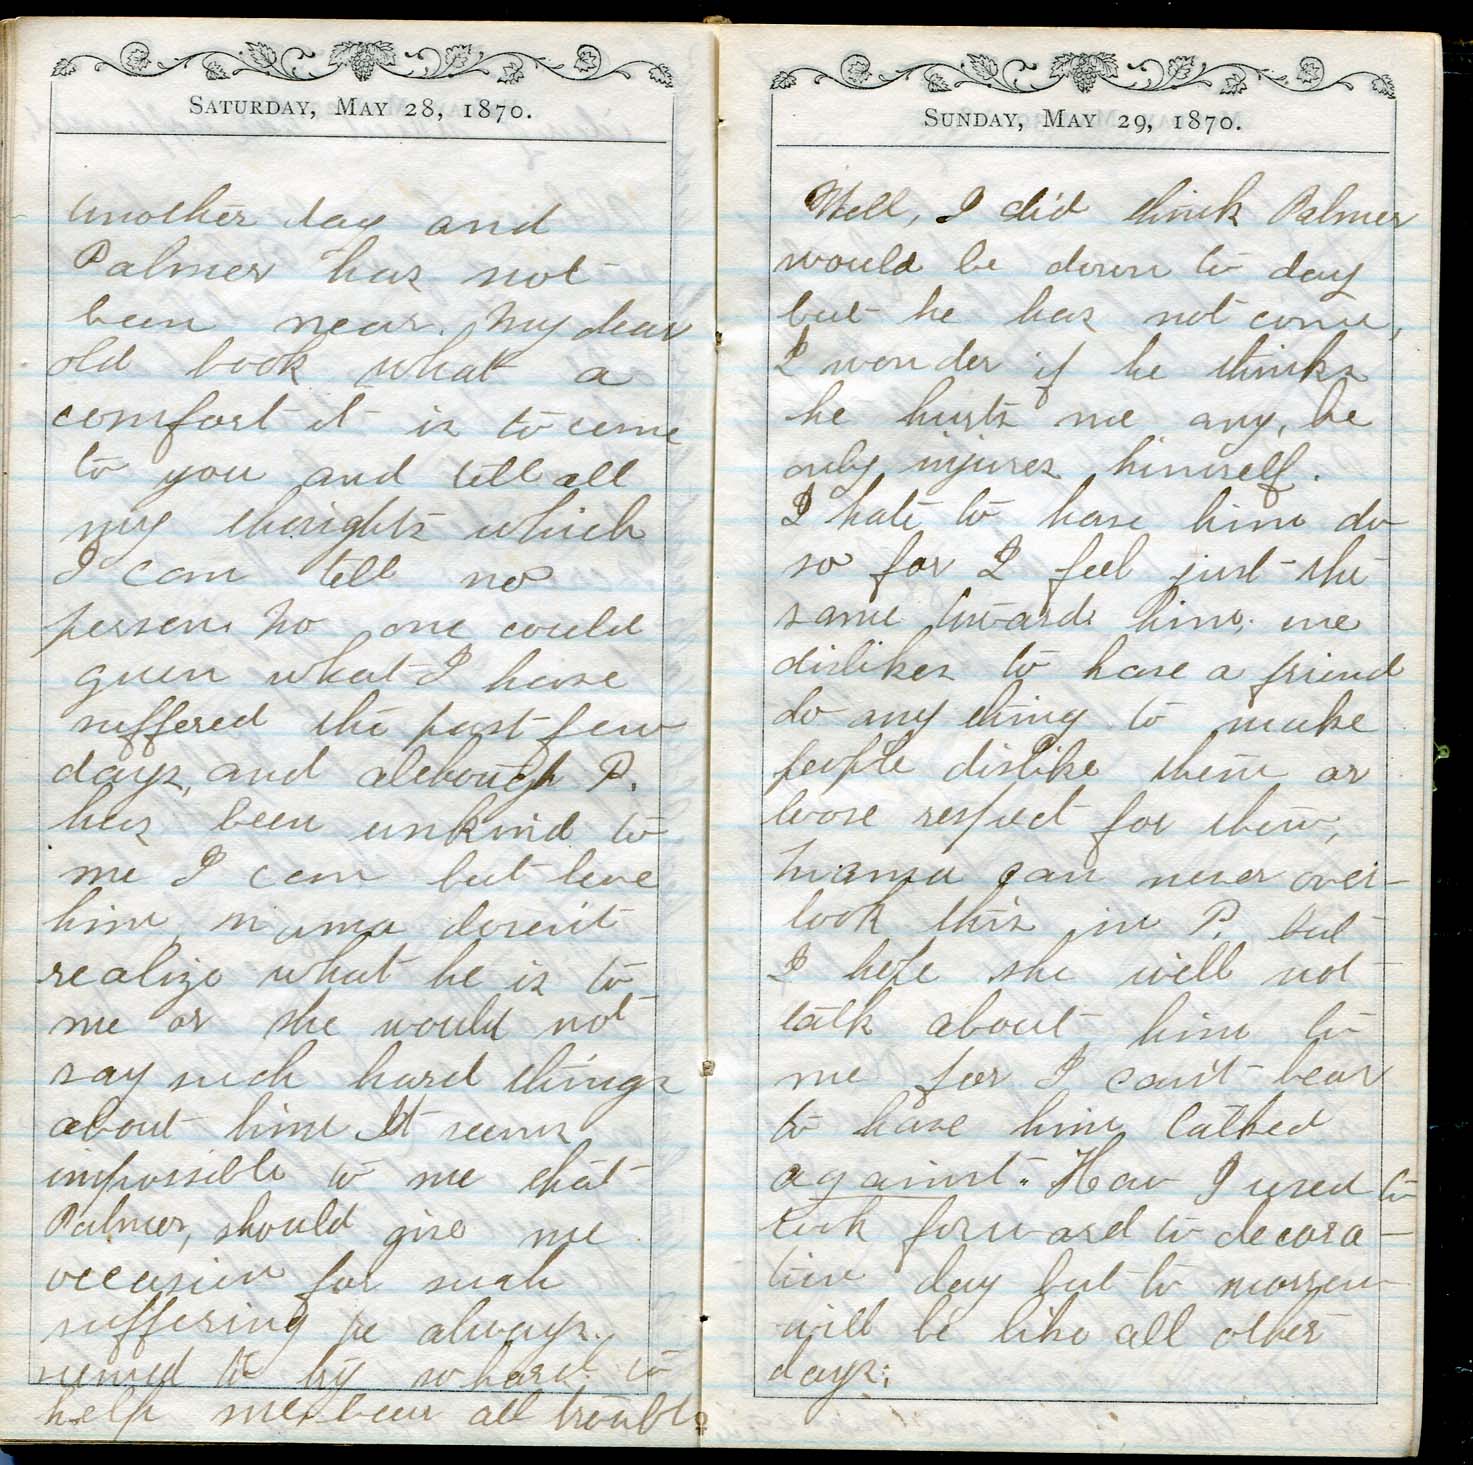 SATURDAY, MAY 28, 1870.
another day and
Palmer has not
been near. My dear
old book what a
comfort it is to come
to you and tell all
my thoughts which
I can tell no
person. No one could
guess what I have
suffered the past few
days, and although P.
has been unkind to
me I can but love
him, mama doesn't
realize what he is to
me or she would not
say such hard things
about him It seems
impossible to me that
Palmer, should give me
occasion for such
suffering he always
seemed to try so hard to
help me bear all trouble
SUNDAY, MAY 29, 1870.
Well, I did think Palmer
would be down to day
but he has not come,
I wonder if he thinks
he hurts me any, he
only injures himself.
I hate to have him do
so for I feel just the
same towards him, one
dislikes to have a friend
do any thing to make
people dislike them or
loose respect for them,
Mama can never over-
look this in P. but
I hope she will not
talk about him to
me for I can't bear
to have him talked
against. How I used to
look forward to decora-
tion day but to morrow
will be like all other
days.